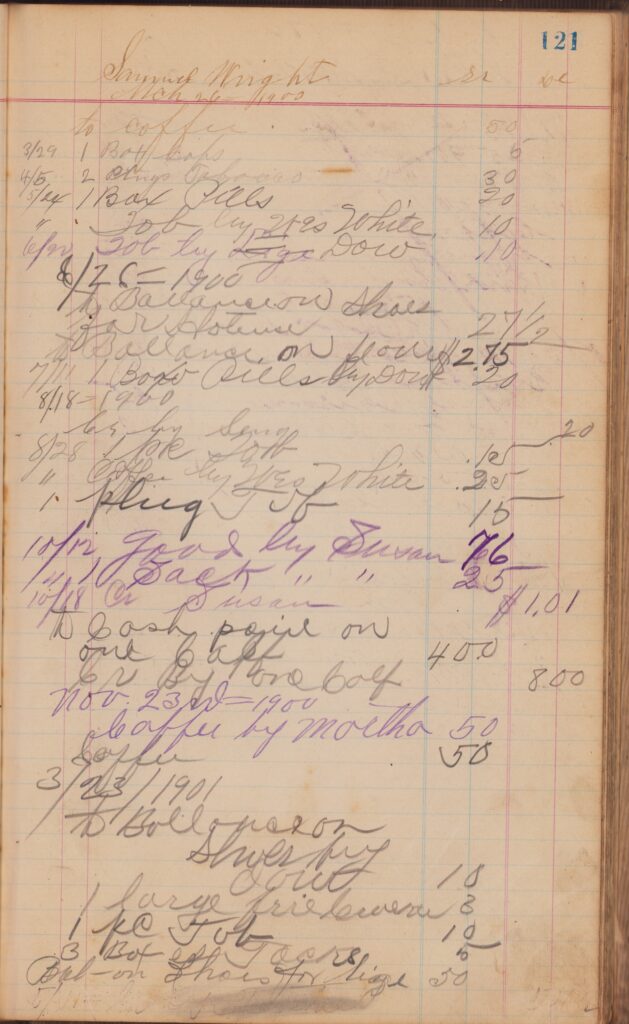 121
Samuel Wright Dr Cr
Mch 26 = 1900
to coffee 50
3/29 1 Box caps 5
4/5 2 Plugs Tobacco 30
5/24 1 Box Pills 20
" Tob by Wes White 10
6/22 Tob by Dow 10
6/26 = 1900
to Ballance on Shoes
27 1/2
to Ballance on $2.75
7/11 1 Box Pills by Dow 20
8/18 = 1900
Cr. by 20
8/28 1 pc Tob .15
" Coffee by Wes White .25
1 Plug Tob 15
10/12 Good by Susan 76
1 Sack " " 25
10/18 Cr Susan $1.01
To Cash paid on
one Calf 4 00
Cr By one Calf 8.00
Nov. 23rd = 1900
Coffee by Martha 50
Coffee 50
3/23/1901
to Ballance on
Shoes by
Dow 10
1 large 3
1 pc Tob 10
3 Box Tacks 5
Bal on Shoes for Lige 50